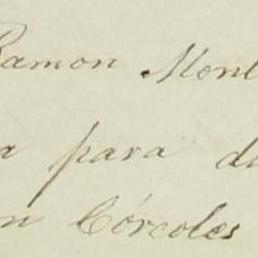 Ramon Mont
a para da
n Córcoles